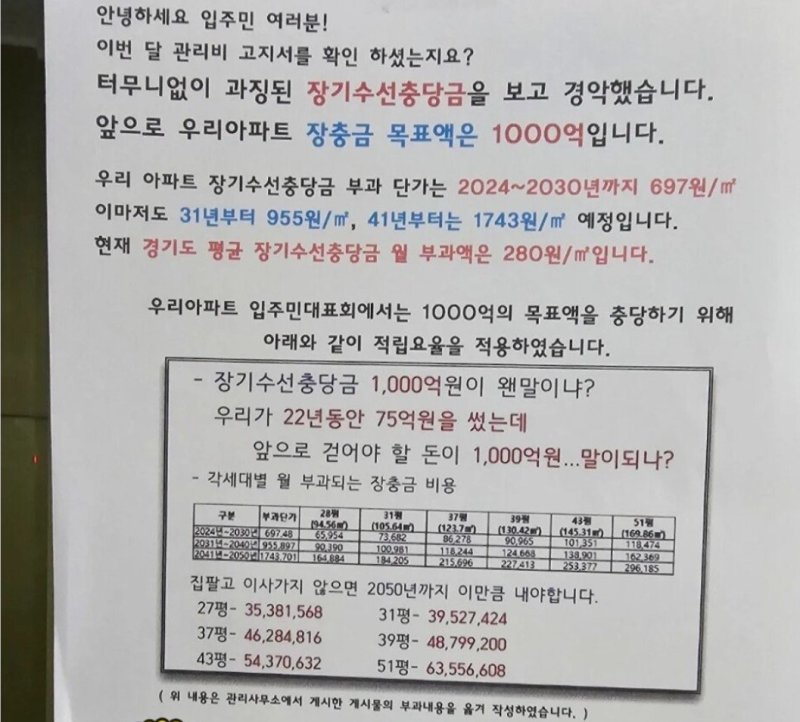 안녕하세요 입주민 여러분!
이번 달 관리비 고지서를 확인 하셨는지요?
터무니없이 과징된 장기수선충당금을 보고 경악했습니다.
앞으로 우리아파트 장충금 목표액은 1000억입니다.
우리 아파트 장기수선충당금 부과 단가는 2024~2030년까지 697원/㎡
이마저도 31년부터 955원/㎡, 41년부터는 1743원/㎡ 예정입니다.
현재 경기도 평균 장기수선충당금 월 부과액은 280원/㎡입니다.
우리아파트 입주민대표회에서는 1000억의 목표액을 충당하기 위해
아래와 같이 적립요율을 적용하였습니다.
- 장기수선충당금 1,000억원이 왠말이냐?
우리가 22년동안 75억원을 썼는데
앞으로 걷어야 할 돈이 1,000억원...말이되나?
- 각세대별 월 부과되는 장충금 비용
구분 부과단가 28평 (94.56㎡) 31평 (105.64㎡) 37평 (123.7㎡) 39평 (130.42㎡) 43평 (145.31㎡) 51평 (169.86㎡)
2024년~2030년 697.48 65,954 73,682 86,278 90,965 101,351 118,474
2031년~2040년 955.897 90,390 100,981 118,244 124,668 138,901 162,369
2041년~2050년 1743.701 164,884 184,205 215,696 227,413 253,377 296,185
집팔고 이사가지 않으면 2050년까지 이만큼 내야합니다.
27평- 35,381,568 31평- 39,527,424
37평- 46,284,816 39평- 48,799,200
43평- 54,370,632 51평- 63,556,608
( 위 내용은 관리사무소에서 게시한 게시물의 부과내용을 옮겨 작성하였습니다. )